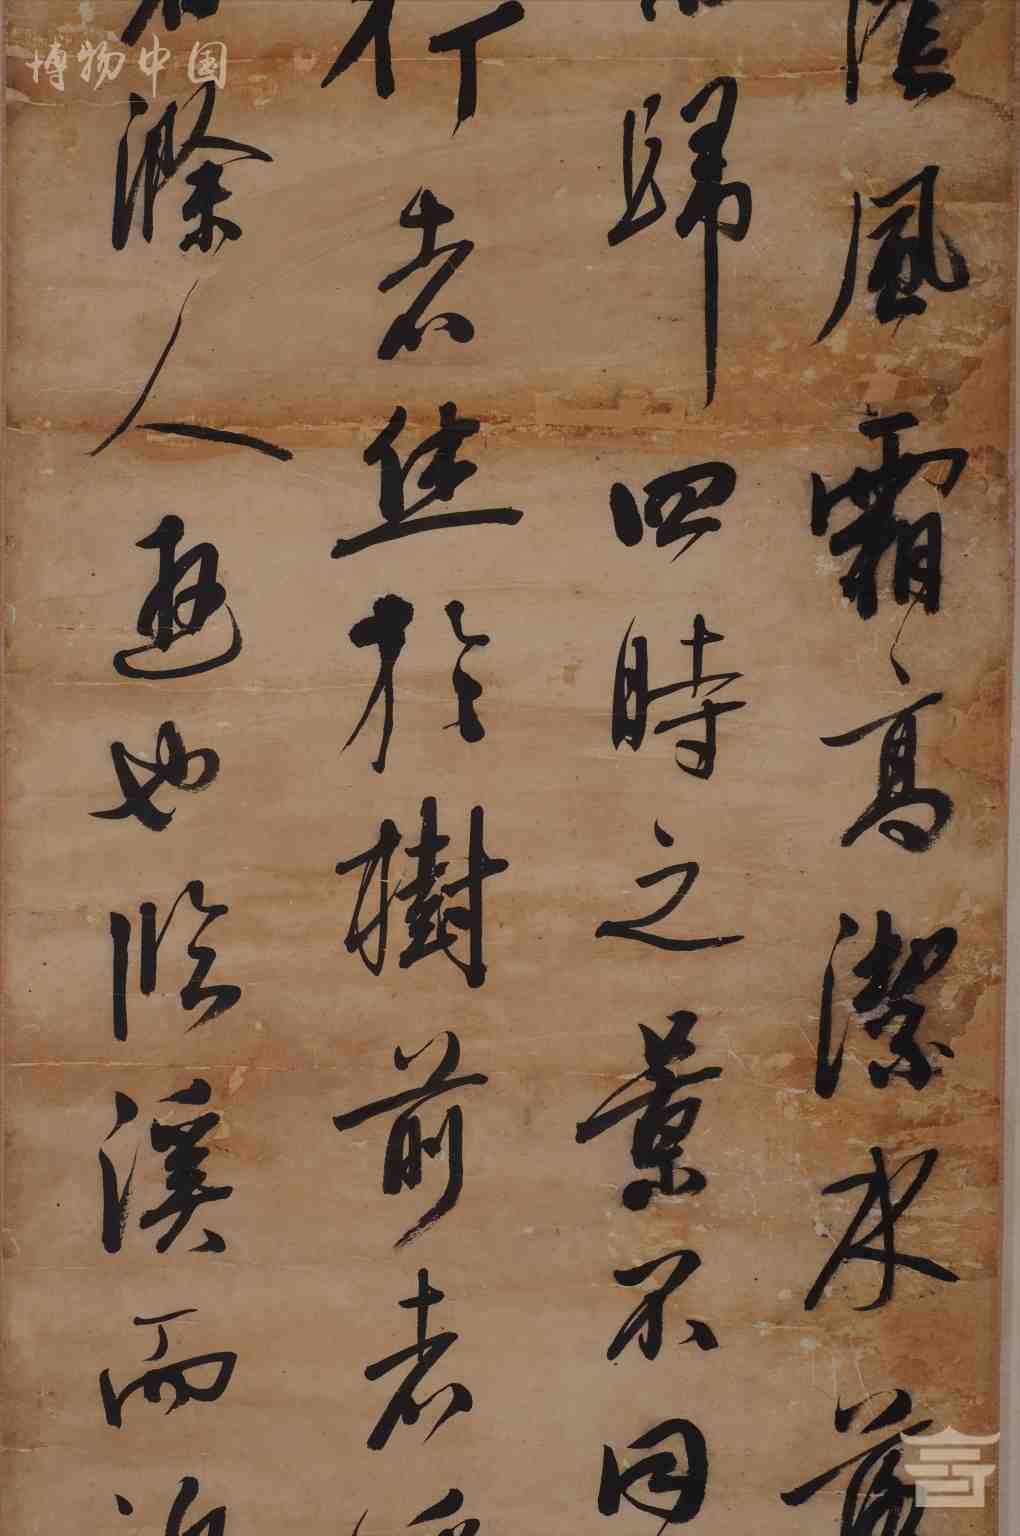 陰風霜高潔水落
歸四時之景不同
行者休於樹前者
滁人遊也臨溪而
博物中国